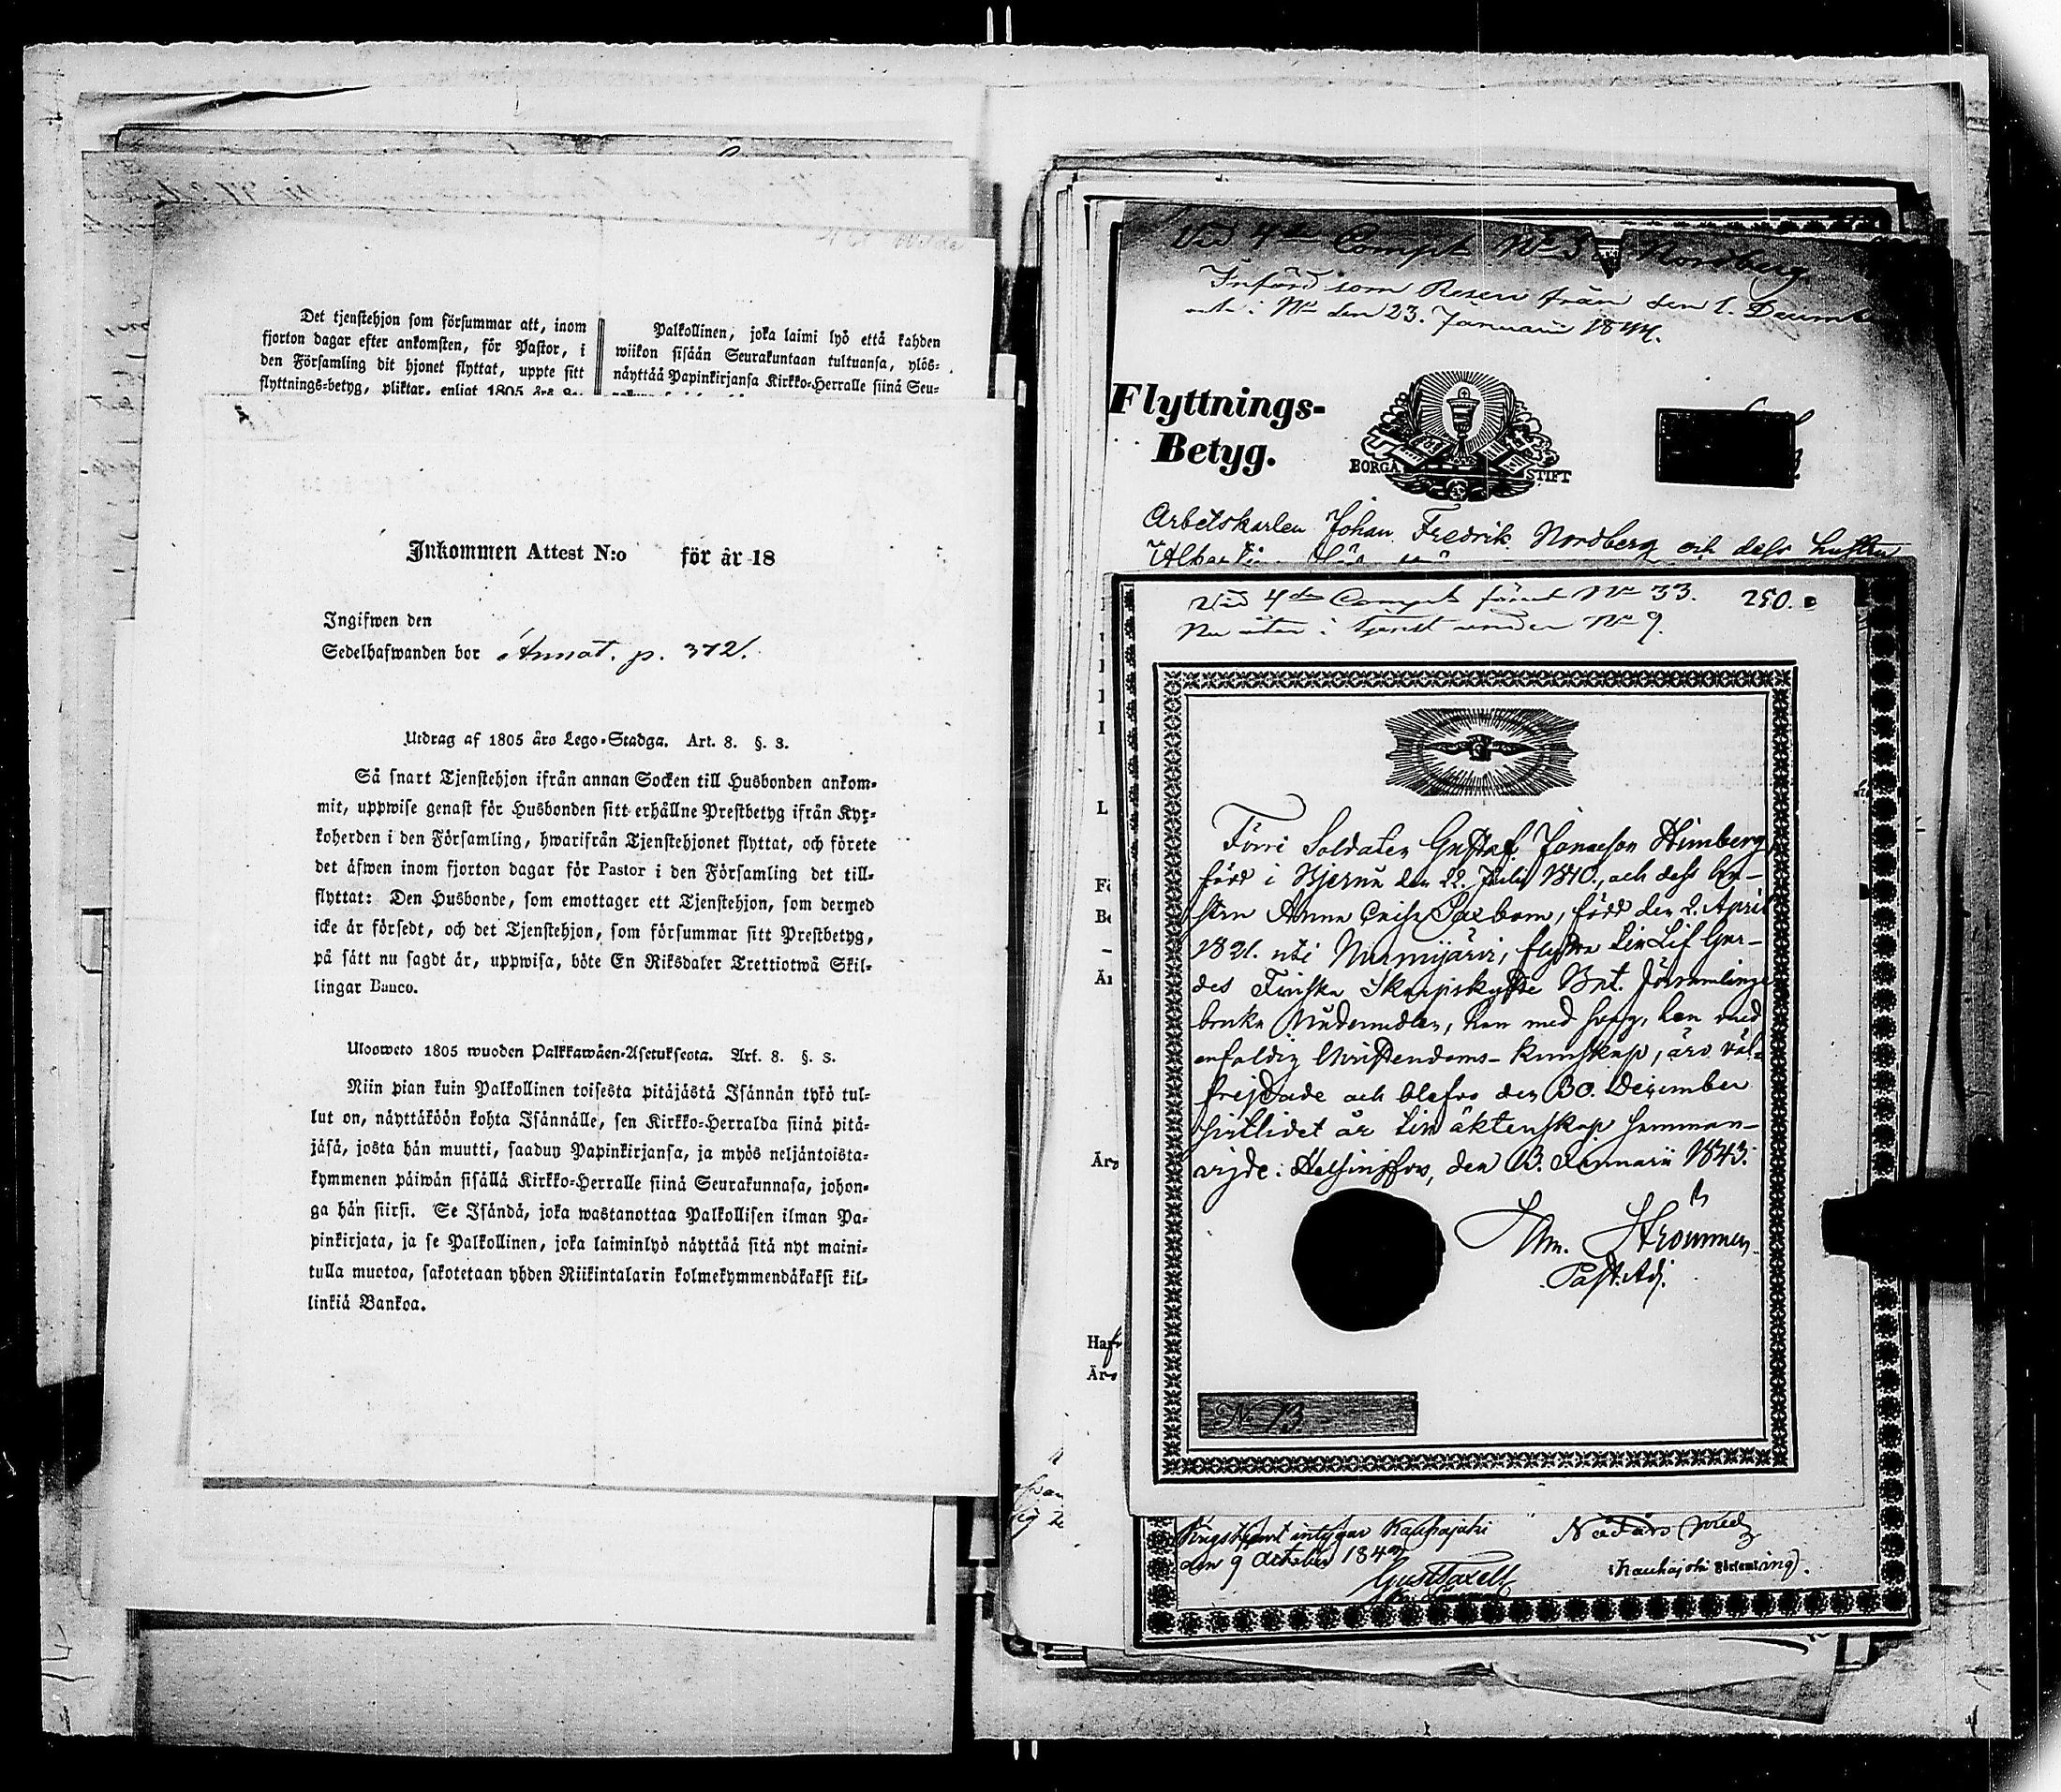 Det tjenstehjon som försummar att, inom
fjorton dagar efter ankomsten, för Pastor, i
den Församling dit hjonet flyttat, uppte sitt
flyttnings-betyg, pliktar, enligt 1805 års
Palkollinen, joka laimi lyö että kahden
wiikon sisään Seurakuntaan tultuansa, ylös-
näyttää Papinkirjansa Kirkko-Herralle siinä Seu-
Inkommen Attest N:o för år 18
Ingifwen den
Sedelhafwanden bor Annat. p. 372.
Utdrag af 1805 års Lego-Stadga. Art. 8. §. 3.
Så snart Tjenstehjon ifrån annan Socken till Husbonden ankom-
mit, uppwise genast för Husbonden sitt erhållne Prestbetyg ifrån Kyr-
koherden i den Församling, hwarifrån Tjenstehjonet flyttat, och förete
det äfwen inom fjorton dagar för Pastor i den Församling det till-
flyttat: Den Husbonde, som emottager ett Tjenstehjon, som dermed
icke är försedt, och det Tjenstehjon, som försummar sitt Prestbetyg,
på sätt nu sagdt är, uppwisa, böte En Riksdaler Trettiotwå Skil-
lingar Banco.
Ulosweto 1805 wuoden Palkkawäen-Asetuksesta. Art. 8. §. 3.
Niin pian kuin Palkollinen toisesta pitäjästä Isännän tykö tul-
lut on, näyttäköön kohta Isännälle, sen Kirkko-Herralda siinä pitä-
jäsä, josta hän muutti, saadun Papinkirjansa, ja myös neljäntoista-
kymmenen päiwän sisällä Kirkko-Herralle siinä Seurakunnasa, johon-
ga hän siirsi. Se Isändä, joka wastanottaa Palkollisen ilman Pa-
pinkirjata, ja se Palkollinen, joka laiminlyö näyttää sitä nyt maini-
tulla muotoa, sakotetaan yhden Riikintalarin kolmekymmendäkaksi kil-
linkiä Bankoa.
Vid 4de Compt No 5 Nordberg
Införd som Reserv från den 1.
den 23. Januarii 1844.
Flyttnings-
Betyg.
BORGÅ STIFT
Arbetskarlen Johan Fredrik Nordberg och dess hustru
Vid 4de Compt förut No 33. 250.
Nu åter i tjenst under No 9.
Förre Soldaten Gustaf Jonasson Stimberg
född i Bjerno den 22. Julii 1810, och dess hu-
stru Anna Caisa född den 2. April
1821. uti Nurmijärvi, flytta till Lif Gar-
des Finska Skarpskytte Bat. Församling,
bruka Nådemedlen, han med han med
enfaldig Christendoms-kunskap, äro väl-
frejdade och blefvo den 30. December
sistlidet år till äktenskap samman-
vigde: Helsingfors, den 13. Januarii 1843.
Past. Adj.
N. 13
intygar Kauhajoki
den 9 October 184
Kauhajoki Församling).